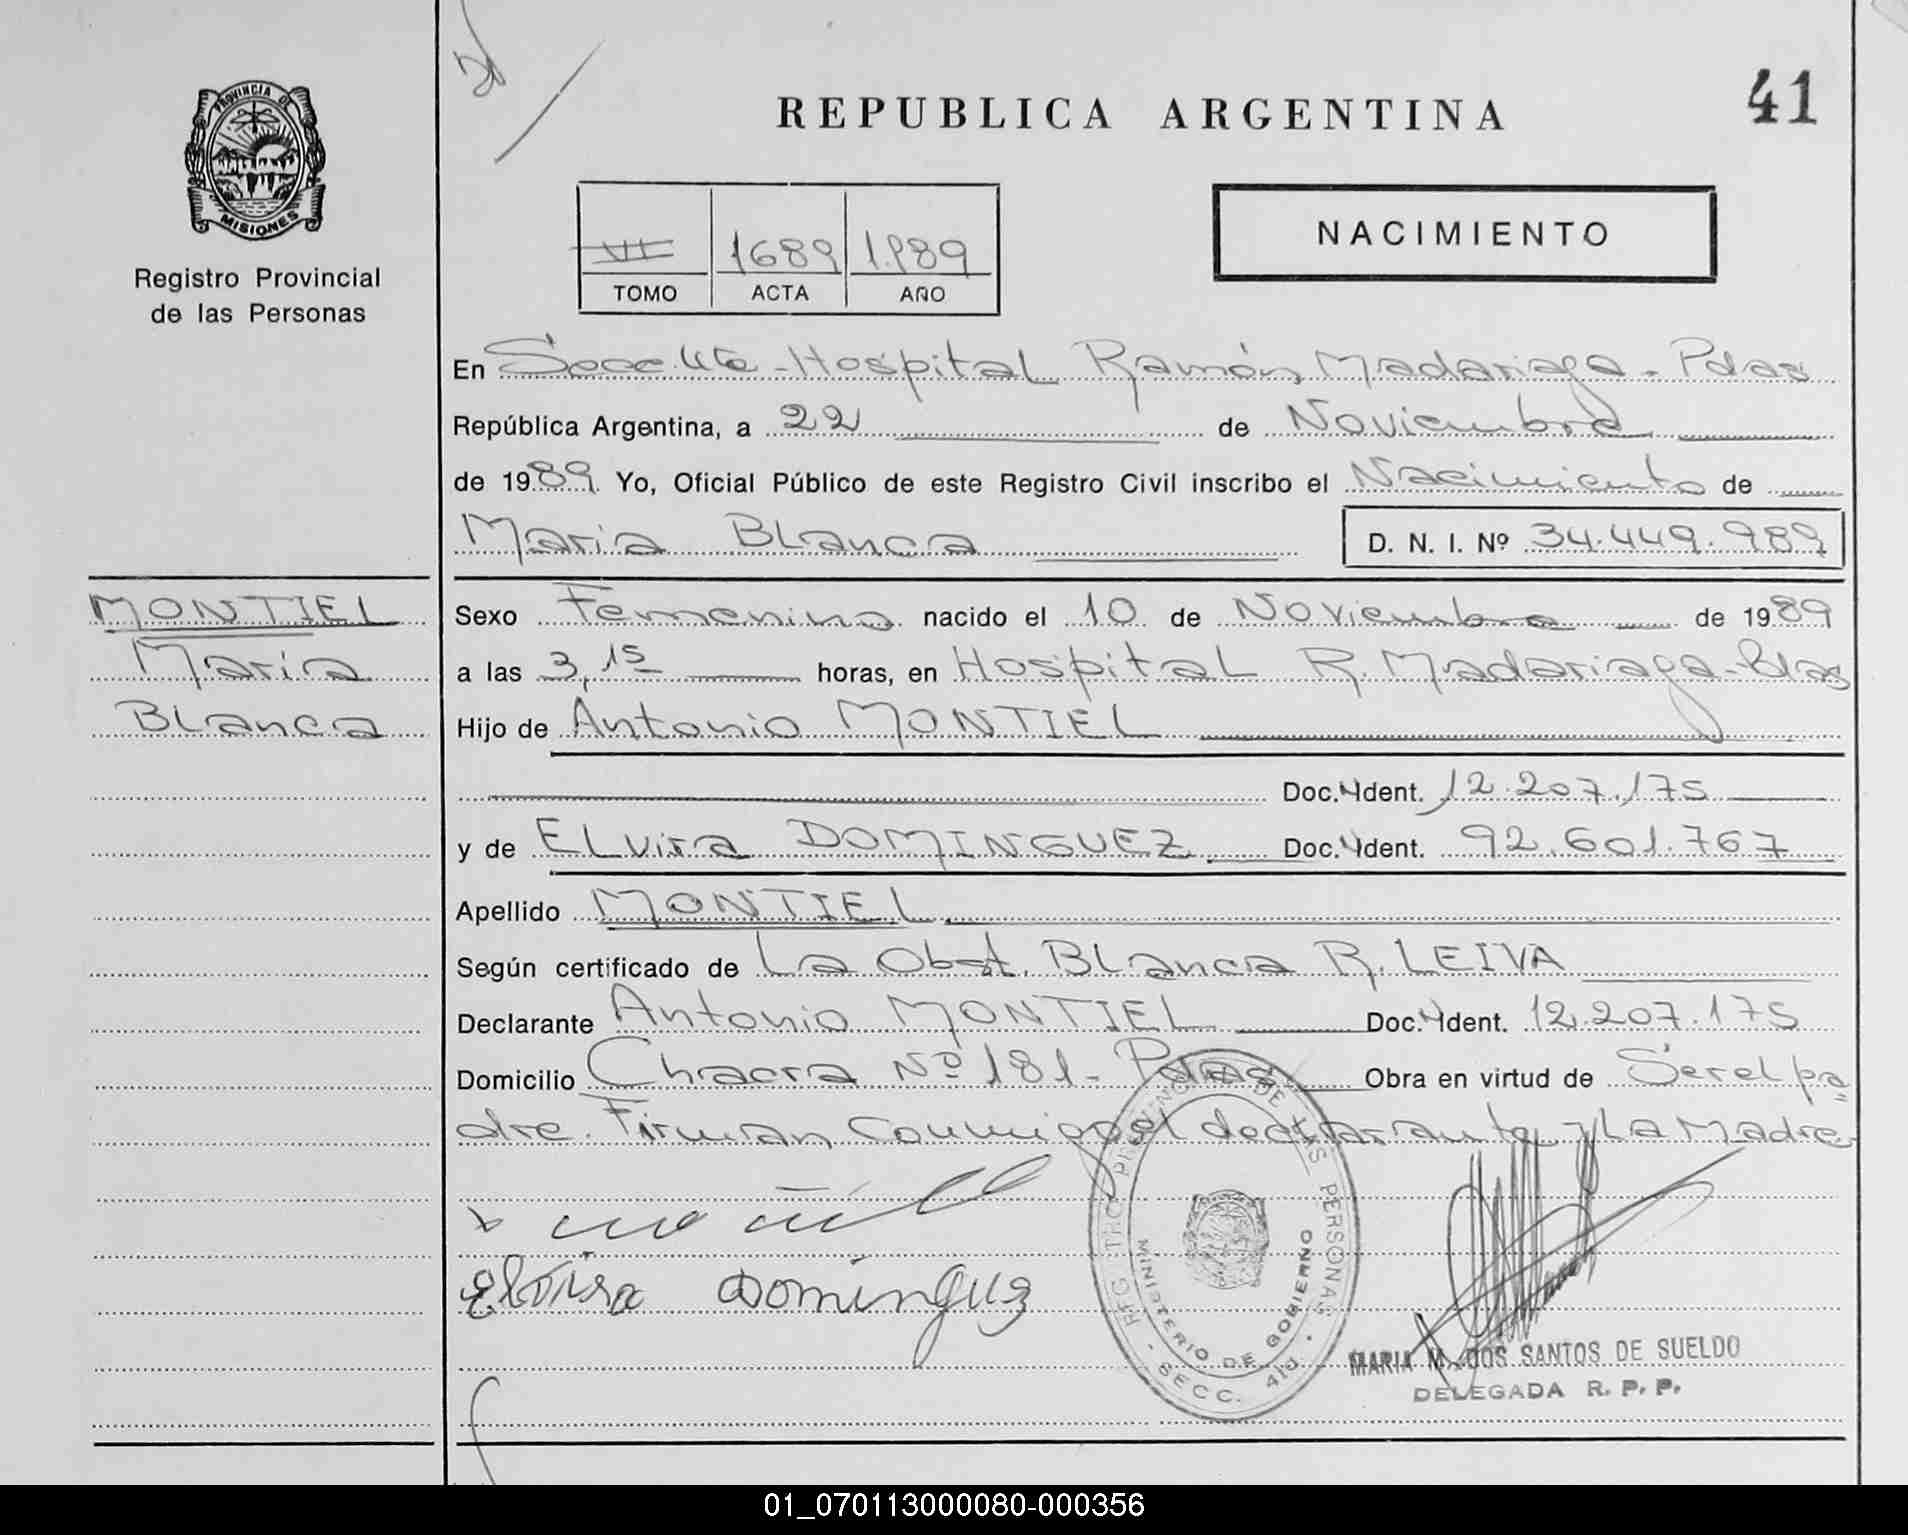 PROVINCIA DE
MISIONES
Registro Provincial
de las Personas
MONTIEL
Maria
Blanca
REPUBLICA ARGENTINA
41
VII 1689 1.989
TOMO ACTA AÑO
NACIMIENTO
En Secc. 4ta - Hospital Ramón Madariaga - Pdas
República Argentina, a 22 de Noviembre
de 1989 Yo, Oficial Público de este Registro Civil inscribo el Nacimiento de
Maria Blanca D. N. I. Nº 34.449.989
Sexo Femenino nacido el 10 de Noviembre de 1989
a las 3,15 horas, en Hospital R. Madariaga - Pdas
Hijo de Antonio MONTIEL
Doc. Ident. 12.207.175
y de ELvira DOMINGUEZ Doc. Ident. 92.601.767
Apellido MONTIEL
Según certificado de La Obst. Blanca R. LEIVA
Declarante Antonio MONTIEL Doc. Ident. 12.207.175
Domicilio Chacra Nº 181 - Pdas Obra en virtud de Ser el pa
dre. Firman conmigo el declarante y La Madre
Elvira Dominguez
REGISTRO PROVINCIAL DE LAS PERSONAS
MINISTERIO DE GOBIERNO
- SECC. 4ta -
MARIA M. DOS SANTOS DE SUELDO
DELEGADA R. P. P.
01_070113000080-000356